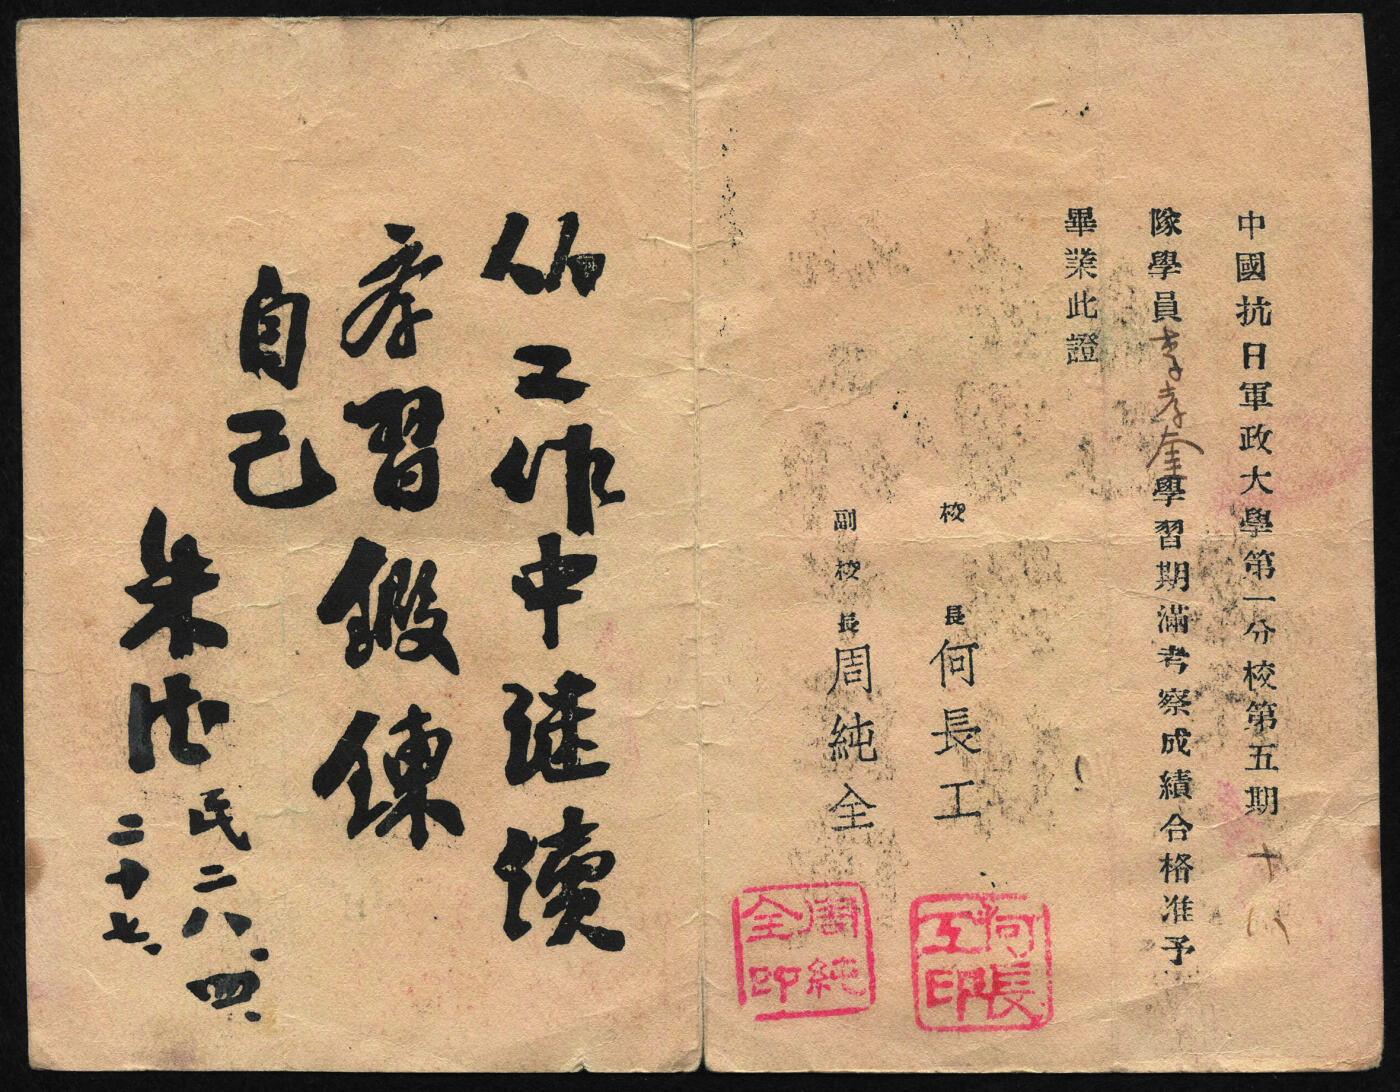 中國抗日軍政大學第一分校第五期十
隊學員李孝奎學習期滿考察成績合格准予
畢業此證
校長何長工
副校長周純全
何長工印
周純全印
从工作中继續
学習鍛鍊
自己
朱德
民二八.四.
二十七.